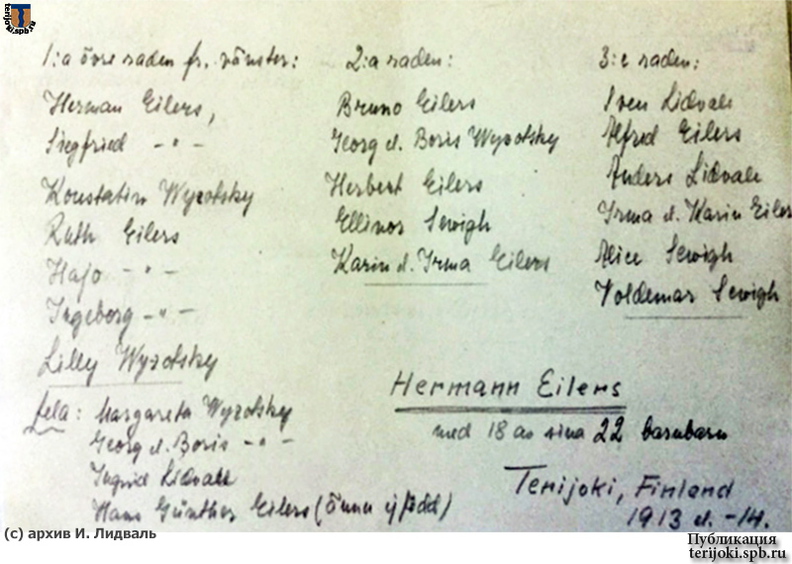 1:a övre raden fr. vänster:
Herman Eilers,
Siegfried -"-
Konstatin Wyzotsky
Ruth Eilers
Hajo -"-
Ingeborg -"-
Lilly Wyzotsky
2:a raden:
Bruno Eilers
Georg el. Boris Wyzotsky
Herbert Eilers
Ellinor Sewigh
Karin el. Irma Eilers
3:e raden:
Sven Lidvall
Alfred Eilers
Anders Lidvall
Irma el. Karin Eilers
Alice Sewigh
Voldemar Sewigh
fela: Margareta Wyzotsky
Georg el. Boris -"-
Ingrid Lidvall
Hans Günther Eilers (ännu ej född)
Hermann Eilers
med 18 av sina 22 barnbarn
Terijoki, Finland
1913 el. -14.
(c) архив И. Лидваль
Публикация
terijoki.spb.ru
terijoki.spb.ru